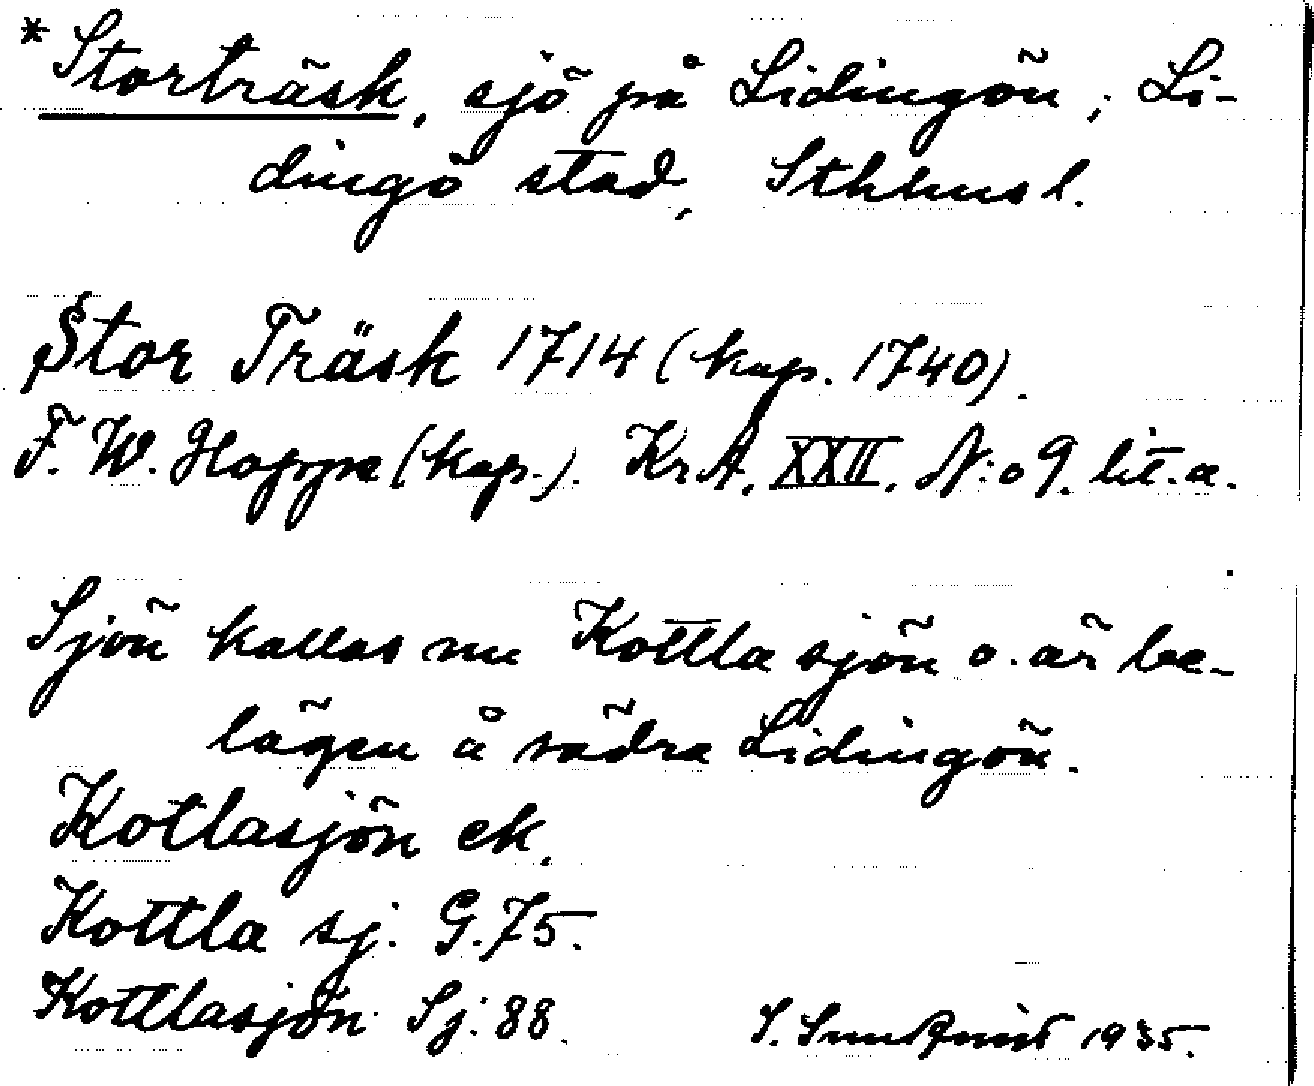 *Storträsk, sjö på Lidingön, Li-
dingö stad, Sthlms l.
Stor Träsk 1714 (kop. 1740).
F. W. Hoppe (kop.). KrA. XXII. N:o 9. lit. a.
Sjön kallas nu Kottlasjön o. är be-
lägen å södra Lidingön.
Kotlasjön ek.
Kottla sj. G. 75.
Kottlasjön Sj. 88.
S. Sundquist 1935.